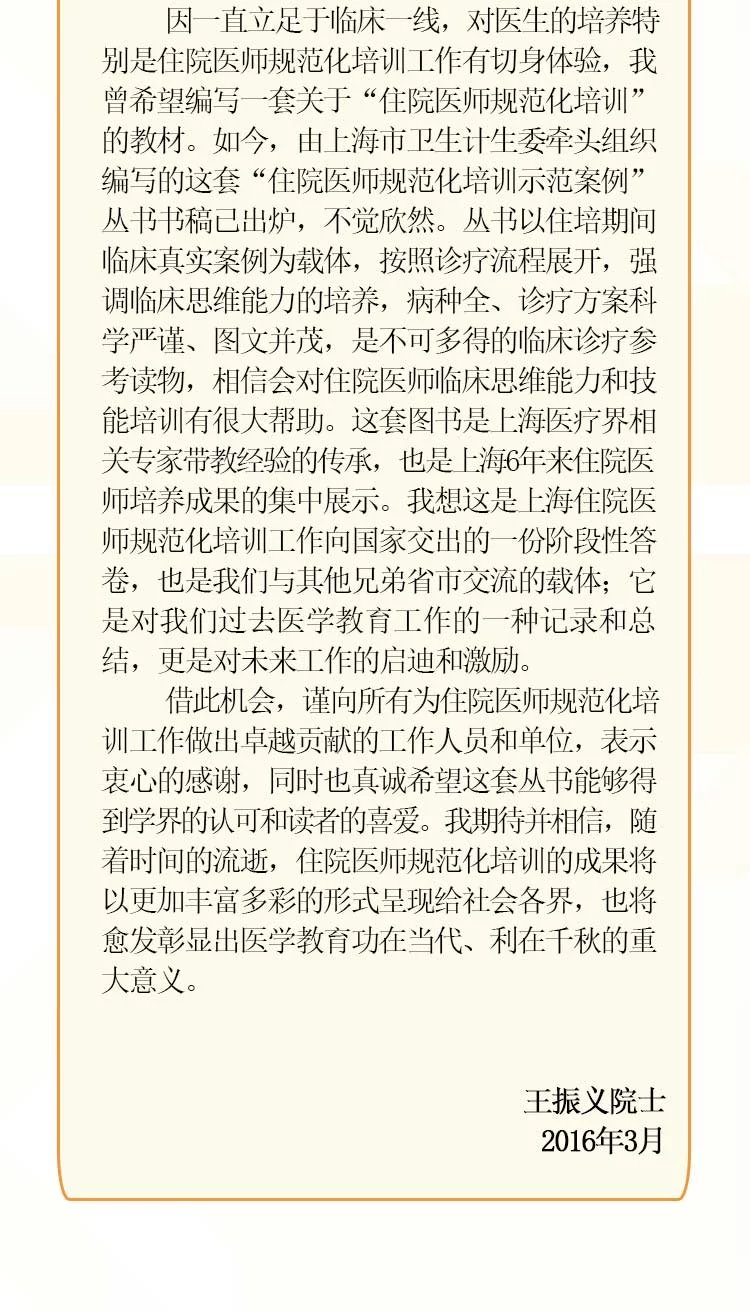 因一直立足于临床一线，对医生的培养特
别是住院医师规范化培训工作有切身体验，我
曾希望编写一套关于“住院医师规范化培训”
的教材。如今，由上海市卫生计生委牵头组织
编写的这套“住院医师规范化培训示范案例”
丛书书稿已出炉，不觉欣然。丛书以住培期间
临床真实案例为载体，按照诊疗流程展开，强
调临床思维能力的培养，病种全、诊疗方案科
学严谨、图文并茂，是不可多得的临床诊疗参
考读物，相信会对住院医师临床思维能力和技
能培训有很大帮助。这套图书是上海医疗界相
关专家带教经验的传承，也是上海6年来住院医
师培养成果的集中展示。我想这是上海住院医
师规范化培训工作向国家交出的一份阶段性答
卷，也是我们与其他兄弟省市交流的载体；它
是对我们过去医学教育工作的一种记录和总
结，更是对未来工作的启迪和激励。
借此机会，谨向所有为住院医师规范化培
训工作做出卓越贡献的工作人员和单位，表示
衷心的感谢，同时也真诚希望这套丛书能够得
到学界的认可和读者的喜爱。我期待并相信，随
着时间的流逝，住院医师规范化培训的成果将
以更加丰富多彩的形式呈现给社会各界，也将
愈发彰显出医学教育功在当代、利在千秋的重
大意义。
王振义院士
2016年3月